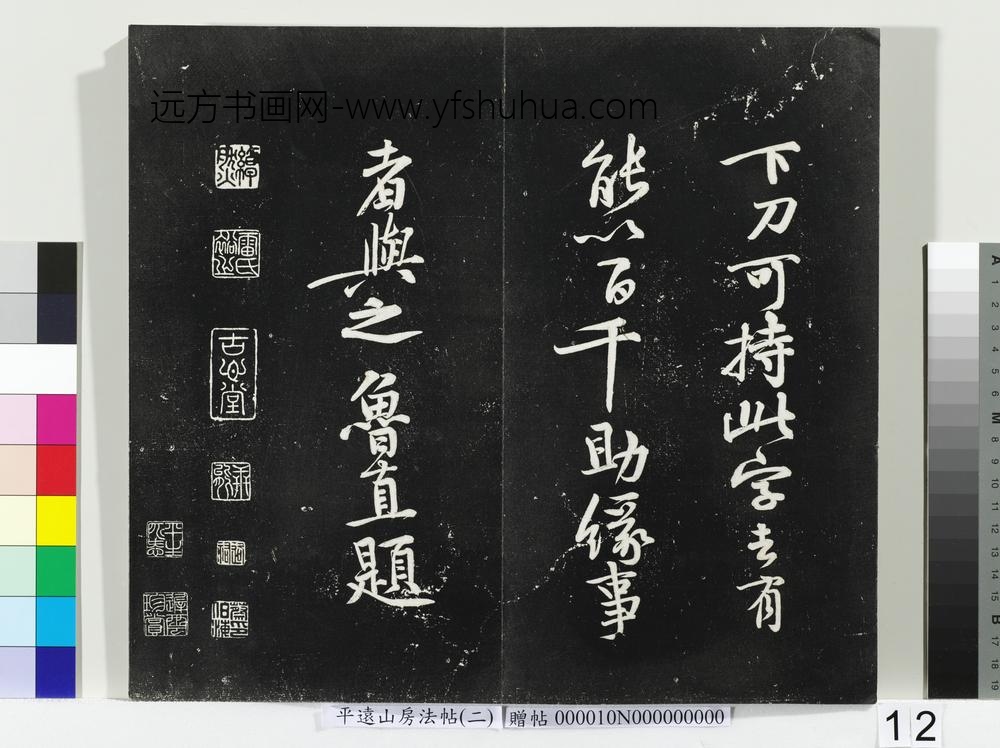 远方书画网-www.yfshuhua.com
下刀可持此字去有
能以百千助缘事
者與之魯直題
古𠃬堂
珍賞
平遠山房法帖(二) 贈帖 000010N000000000
12
A 1 2 3 4 5 6 M 8 9 10 11 12 13 14 15 B 17 18 19